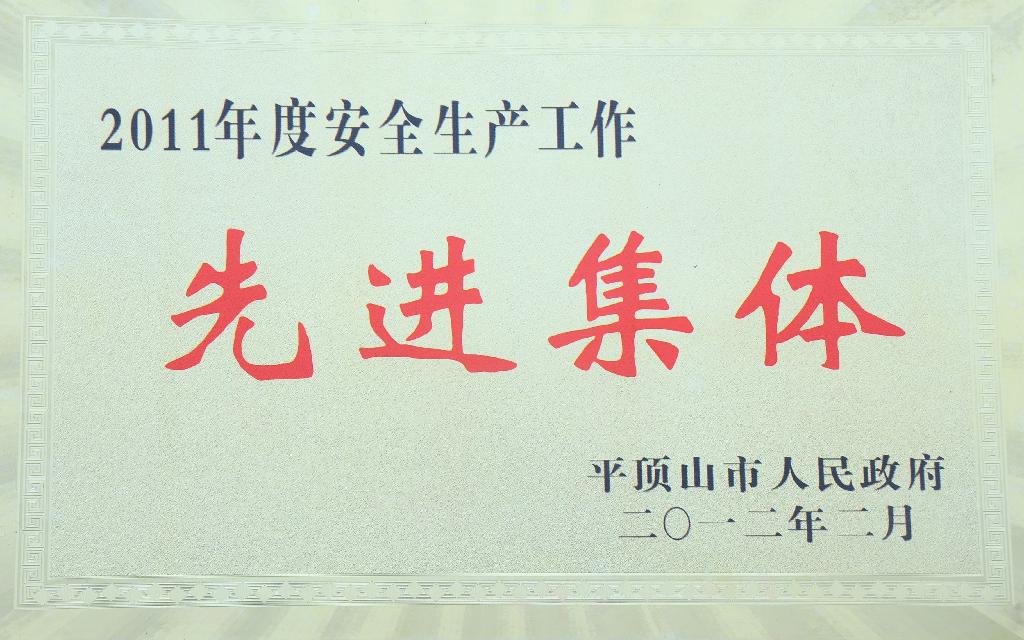 2011年度安全生产工作
先进集体
平顶山市人民政府
二〇一二年二月